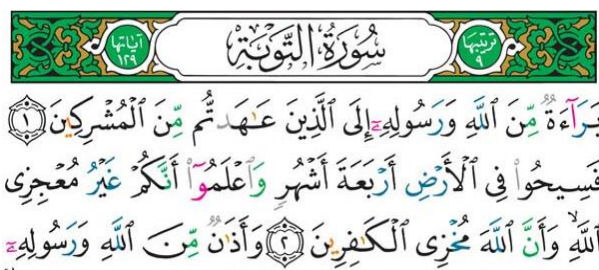 ترتيبها ٩ سُورَةُ التَّوْبَةِ آياتها ١٢٩
بَرَآءَةٌ مِّنَ ٱللَّهِ وَرَسُولِهِۦٓ إِلَى ٱلَّذِينَ عَٰهَدتُّم مِّنَ ٱلْمُشْرِكِينَ ١
فَسِيحُوا۟ فِى ٱلْأَرْضِ أَرْبَعَةَ أَشْهُرٍ وَٱعْلَمُوٓا۟ أَنَّكُمْ غَيْرُ مُعْجِزِى
ٱللَّهِ ۙ وَأَنَّ ٱللَّهَ مُخْزِى ٱلْكَٰفِرِينَ ٢ وَأَذَٰنٌ مِّنَ ٱللَّهِ وَرَسُولِهِۦٓ